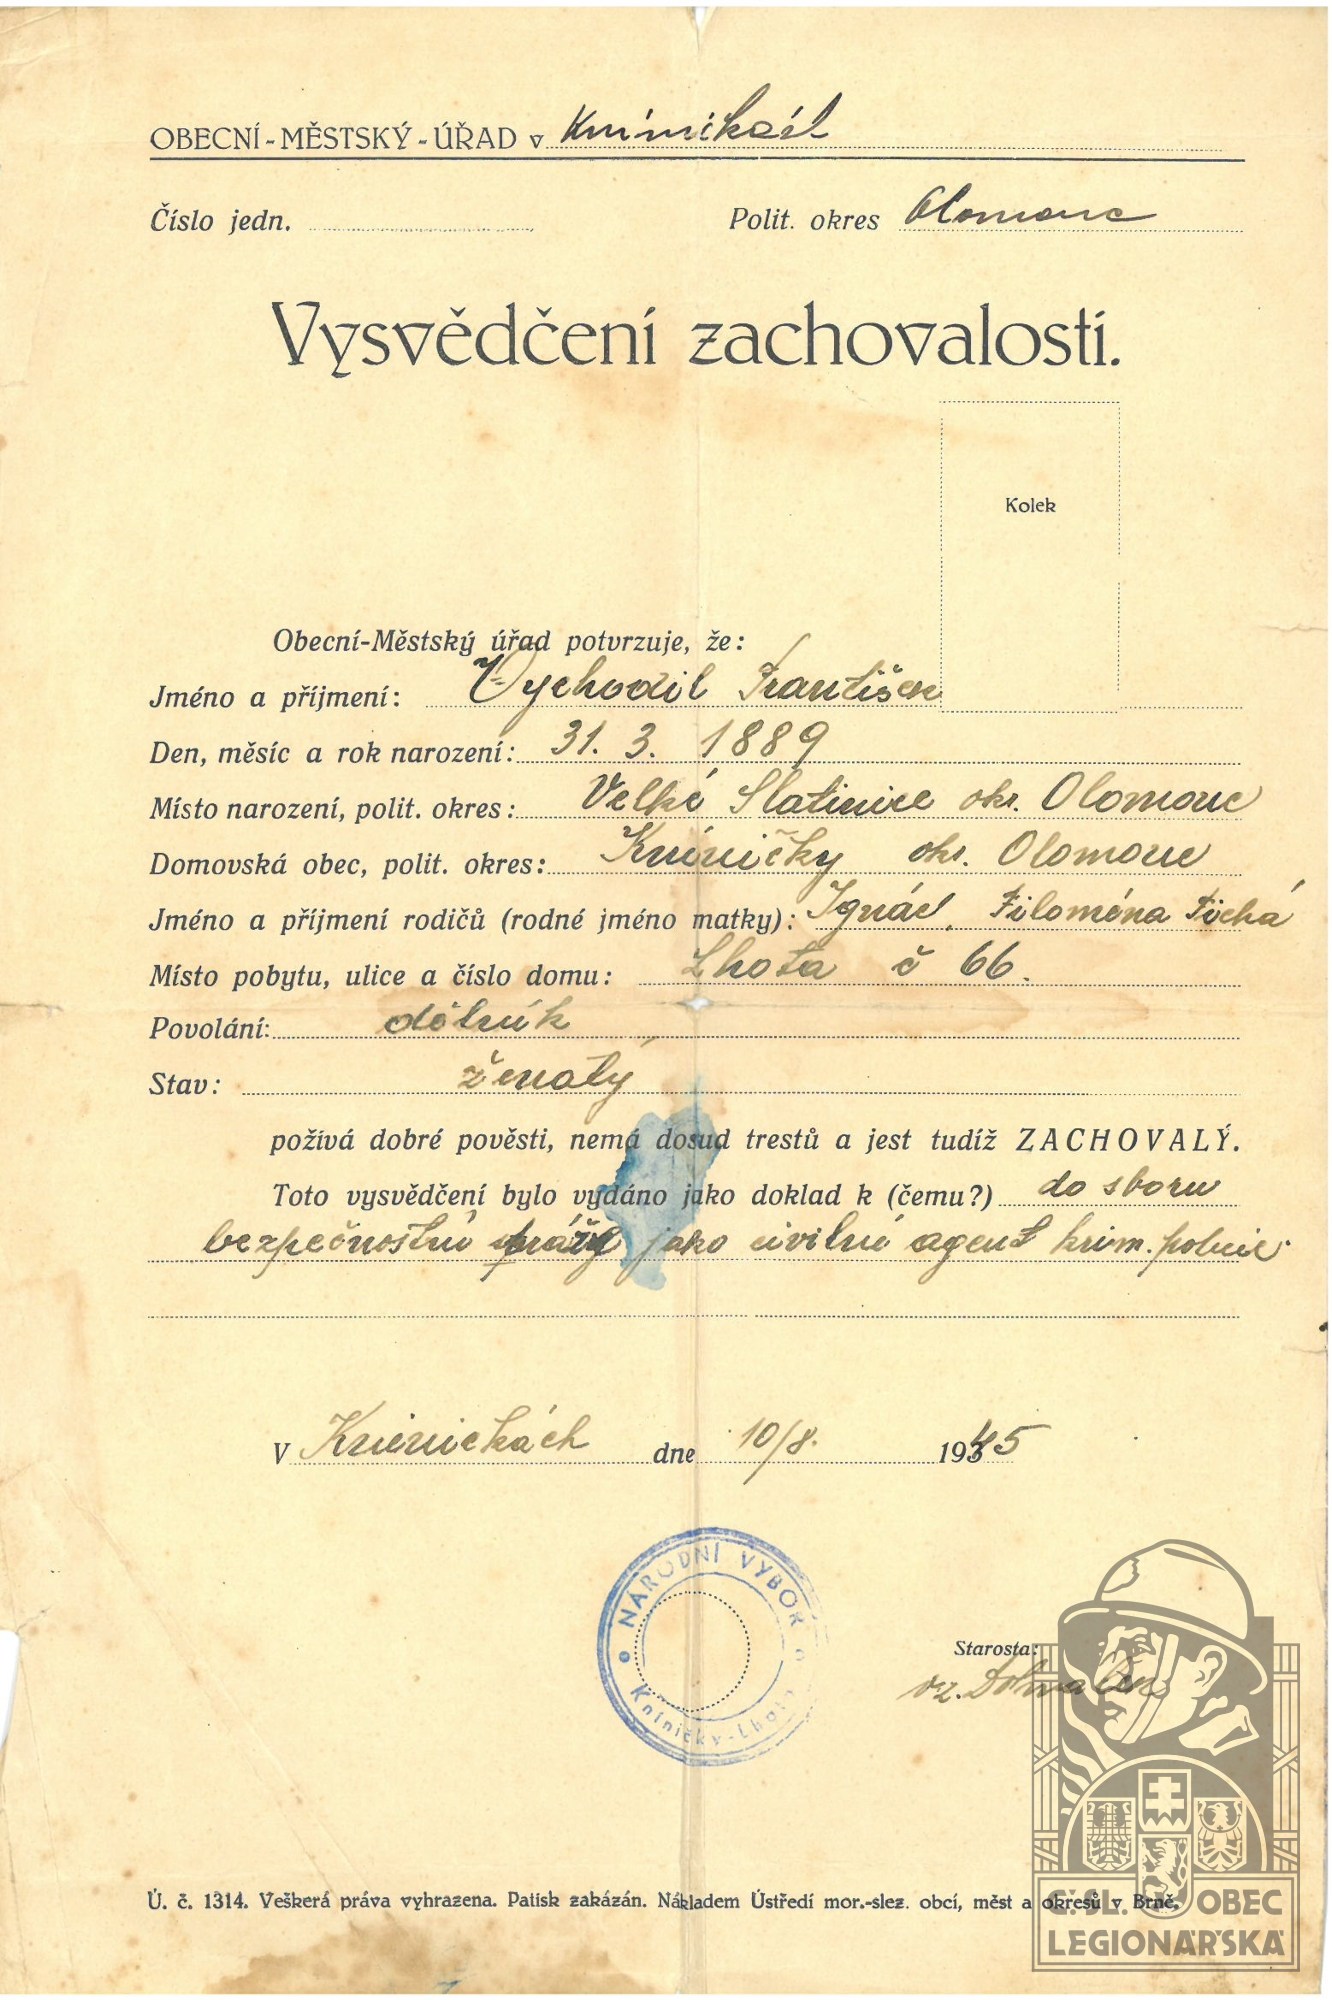 OBECNÍ-MĚSTSKÝ-ÚŘAD v
Číslo jedn. Polit. okres Olomouc
Vysvědčení zachovalosti.
Kolek
Obecní-Městský úřad potvrzuje, že:
Jméno a příjmení: Vychodil František
Den, měsíc a rok narození: 31. 3. 1889
Místo narození, polit. okres: Velké Slatinice okr. Olomouc
Domovská obec, polit. okres: Kníničky okr. Olomouc
Jméno a příjmení rodičů (rodné jméno matky): Ignác, Filoména
Místo pobytu, ulice a číslo domu: Lhota č 66.
Povolání: dělník
Stav: ženatý
požívá dobré pověsti, nemá dosud trestů a jest tudíž ZACHOVALÝ.
Toto vysvědčení bylo vydáno jako doklad k (čemu?) do sboru
bezpečnostní jako civilní agent krim. policie.
V Kníničkách dne 10/8. 1945
NÁRODNÍ VÝBOR
Kníničky-Lhota
Starosta:
vz.
Ú. č. 1314. Veškerá práva vyhrazena. Patisk zakázán. Nákladem Ústředí mor.-slez. obcí, měst a okresů v Brně.
Č.SL. OBEC
LEGIONÁŘSKÁ